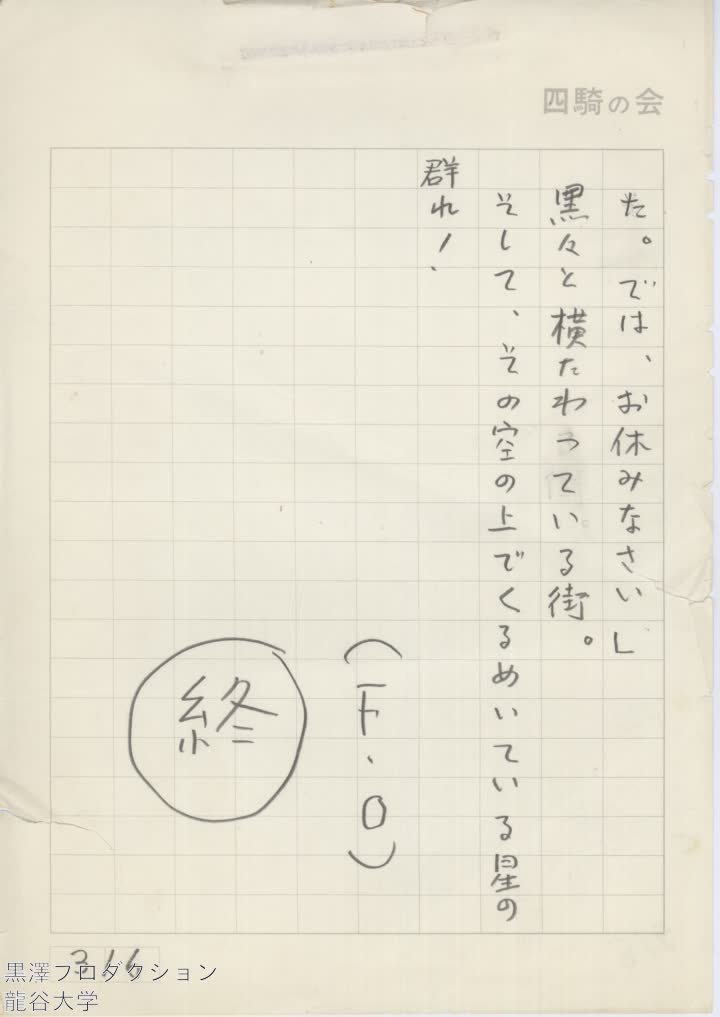 四騎の会
た。では、お休みなさい」
黒々と横たわっている街。
そして、その空の上でくるめいている星の
群れ!
(F・O)
終
316
黒澤プロダクション
龍谷大学